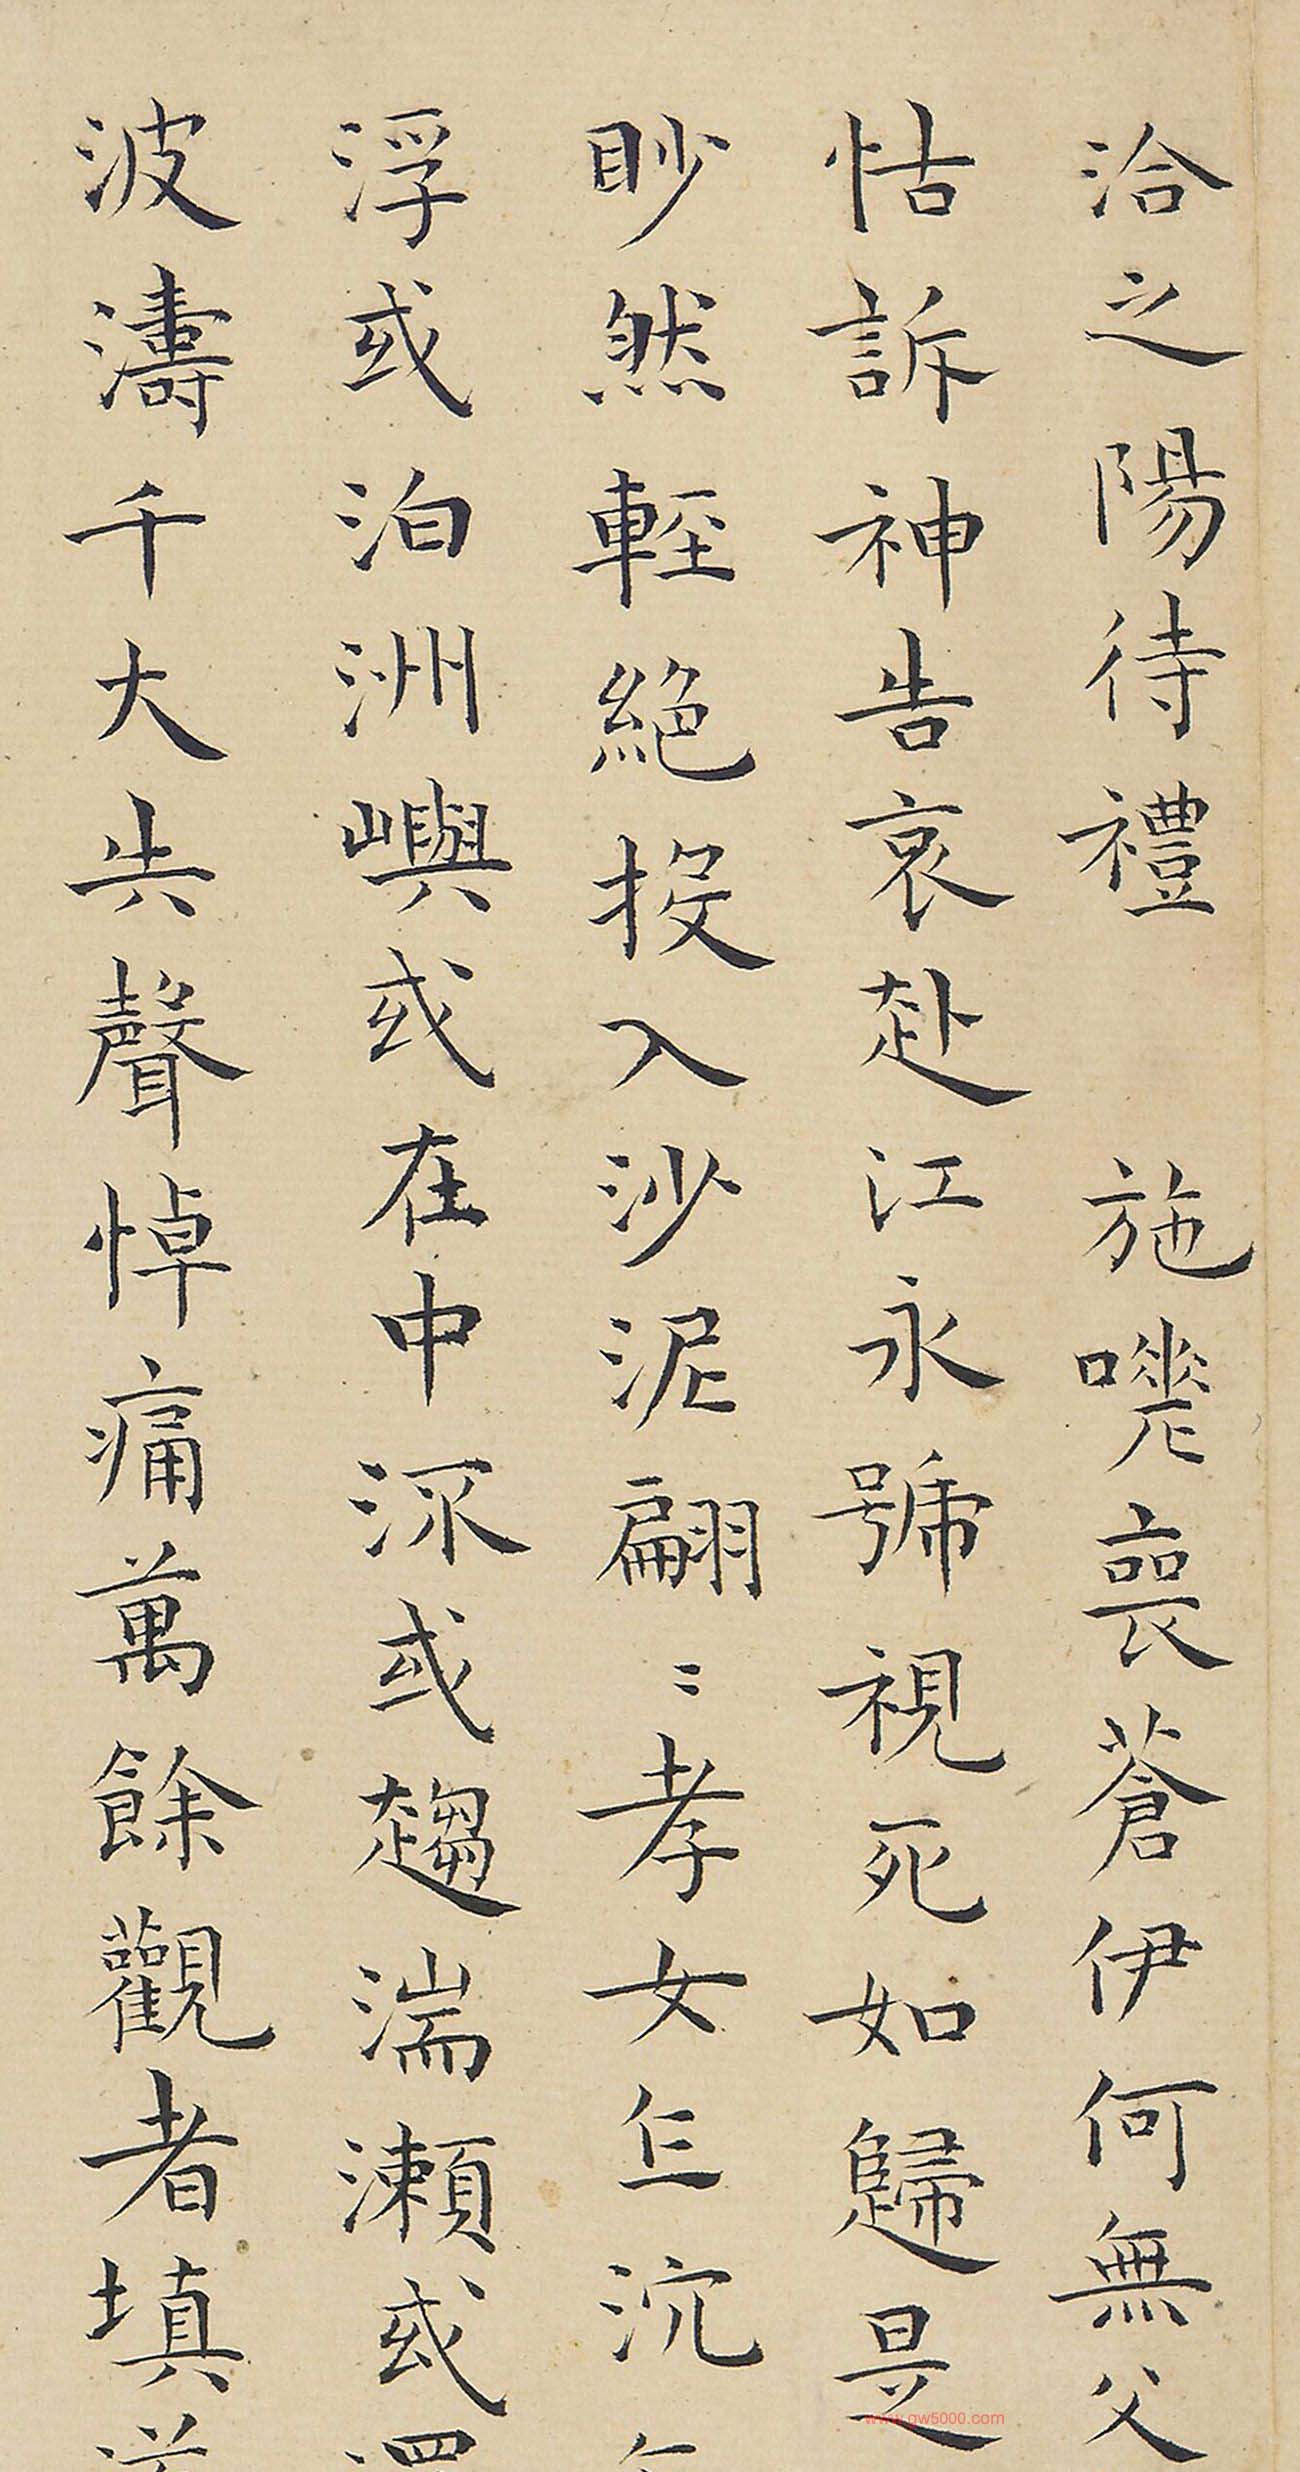 洽之陽待禮　施嗟喪蒼伊何無父
怙訴神告哀赴江永號視死如歸是
眇然輕絕投入沙泥翩〻孝女乍沉
浮或泊洲嶼或在中深或趨湍瀨或
波濤千大失聲悼痛萬餘觀者填
www.gw5000.com